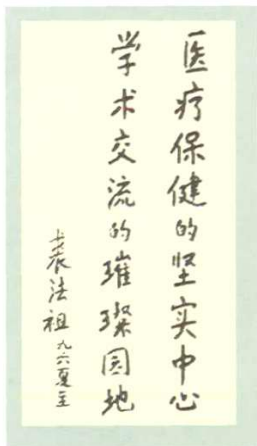 医疗保健的坚实中心
学术交流的璀璨园地
裘法祖 九六夏至